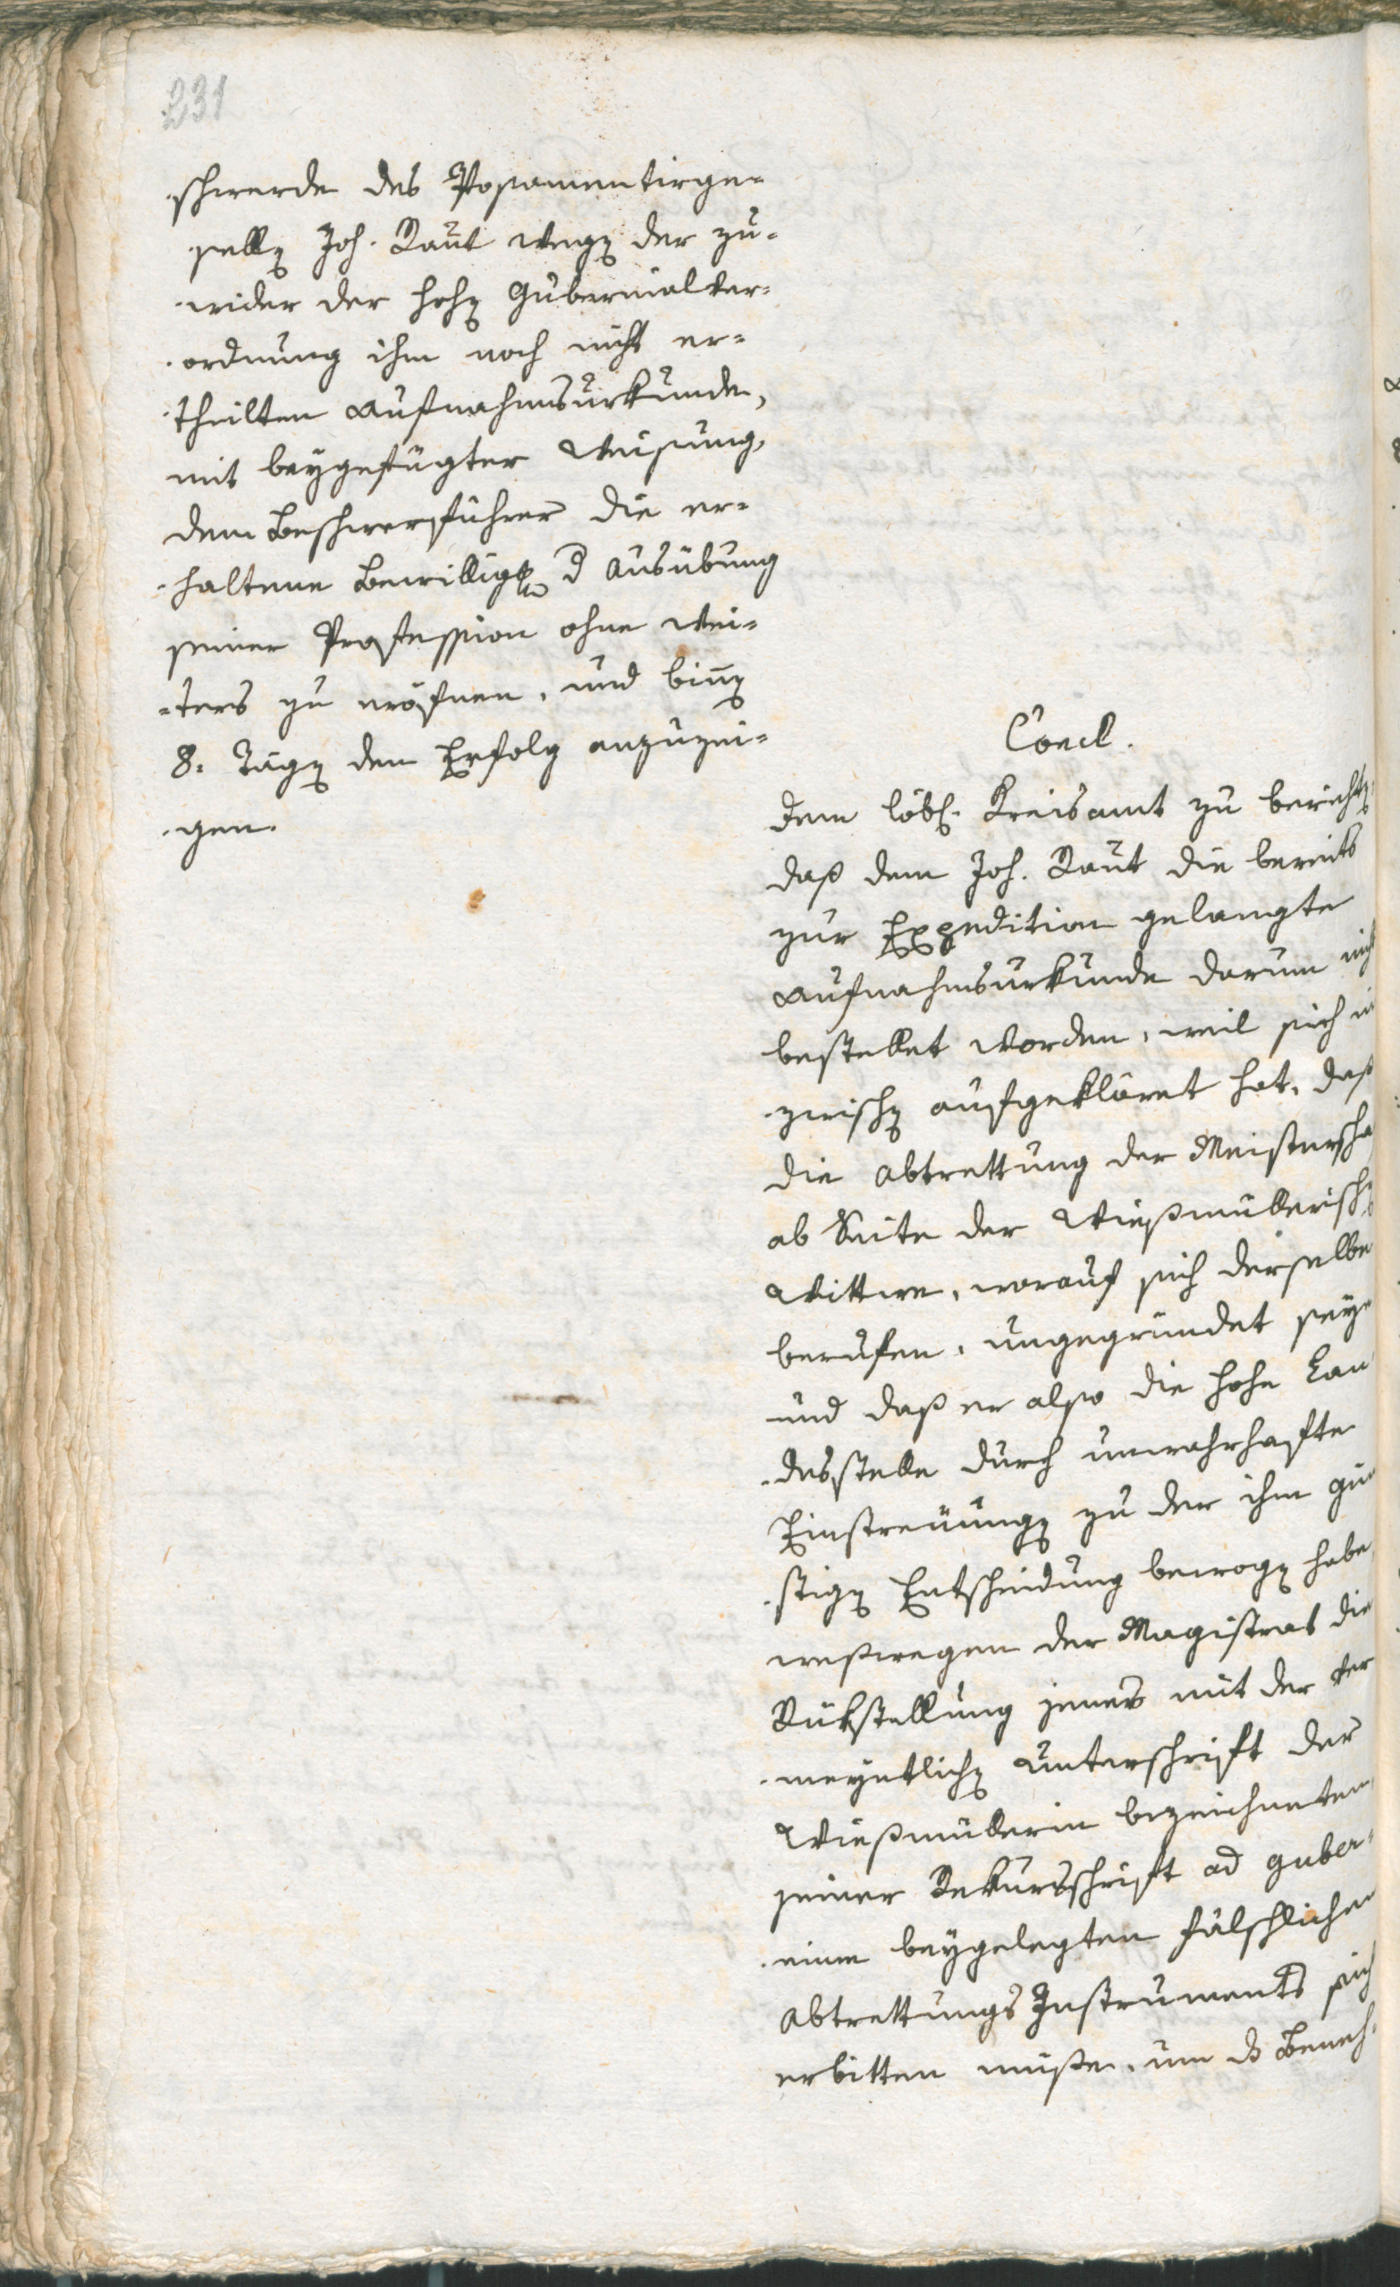 231
schwerde des Posamentirge-
selln Joh. Raut wegen der zu-
wider der hohen Gubernialver-
ordnung ihm noch nicht er-
theilten Aufnahmsurkunde,
mit beygefügter Weisung,
dem Beschwerführer die er-
haltene Bewilligg d Ausübung
seiner Profession ohne wei-
ters zu eröfnen, und binnen
8. Tägen den Erfolg anzuzei-
gen.
Concl.
Dem löbl. Kreisamt zu berichten
daß dem Joh. Raut die bereits
zur Expedition gelangte
Aufnahmsurkunde darum nicht
bestellet worden, weil sich in
zwischen aufgekläret hat, daß
die Abtrettung der Meisterscha
ab Seite der Wießmüllerisch
Wittwe, worauf sich derselbe
berufen, ungegründet seye
und daß er also die hohe Lan
desstelle durch unwahrhafte
Einstreuungen zu der ihm gün
stigen Entscheidung bewogen habe
weßwegen der Magistrat die
Rükstellung jenes mit der ver
meyntlichen Unterschrift der
Wießmüllerin bezeichneten
seiner Rekursschrift ad guber-
nium beygelegten fälschlichen
Abtrettungs Instruments sich
erbitten müße, um ds Beneh-